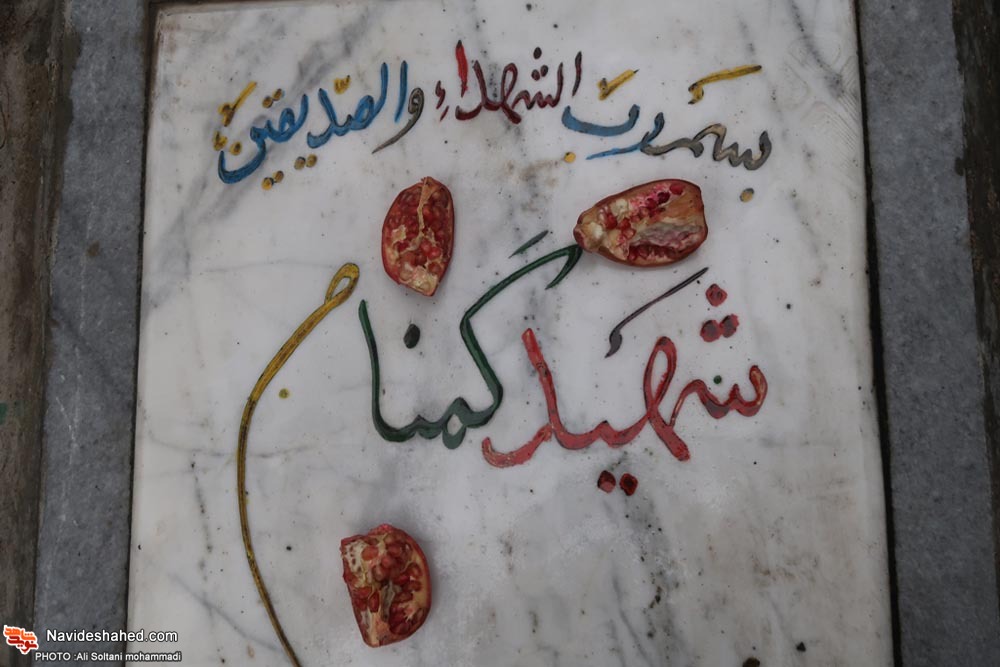 بسم رب الشهداء والصدیقین
شهید گمنام
Navideshahed.com
PHOTO :Ali Soltani mohammadi